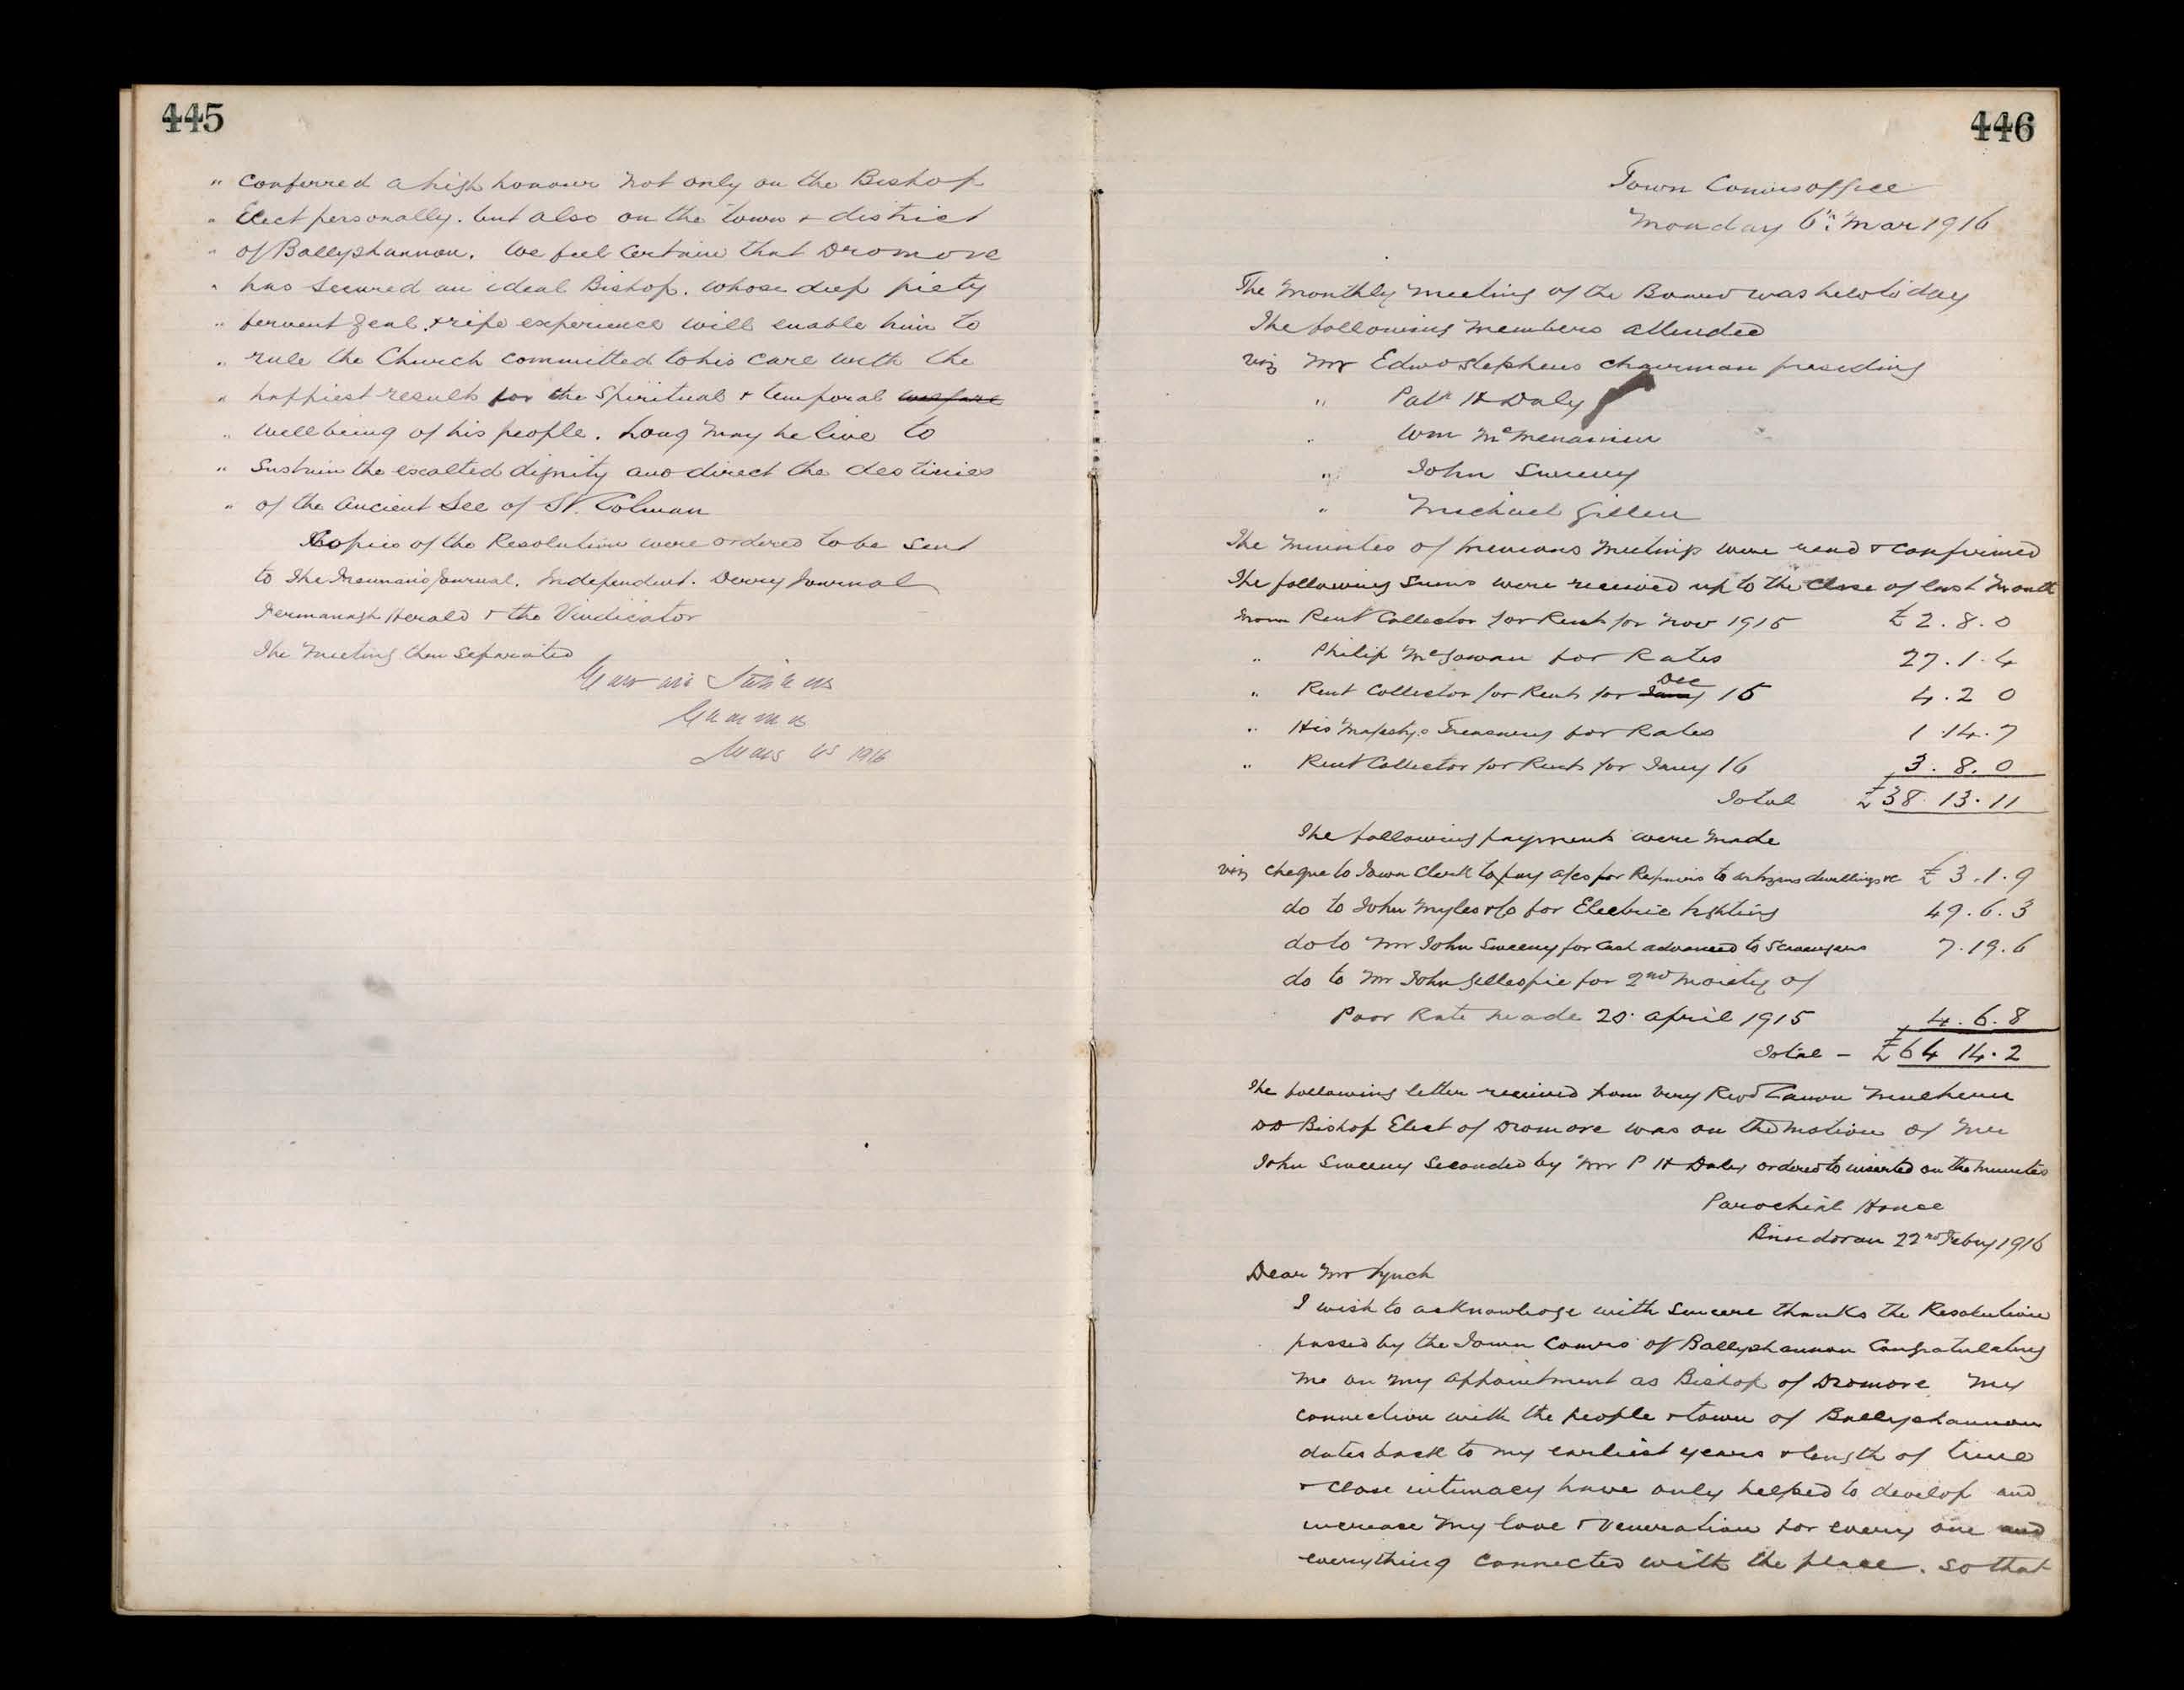 445
" conferred a high honour not only on the Bishop
" Elect personally. but also on the town & district
" of Ballyshannon. We feel certain that Dromore
" has secured an ideal Bishop. whose deep piety
" fervent zeal. & ripe experience will enable him to
" rule the Church committed to his care with the
" happiest results for the Spiritual & temporal welfare
" wellbeing of his people. Long may he live to
" Sustain the exalted dignity and direct the destinies
" of the ancient See of St. Colman
Copies of the Resolution were ordered to be sent
to The Freemans Journal. Independent. Derry Journal
Fermanagh Herald & the Vindicator
The Meeting then separated
1916
446
Town Comrs office
Monday 6th Mar 1916
The Monthly Meeting of the Board was held to day
The following Members attended
viz Mr Edwd Stephens Chairman presiding
" Patk H Daly
" Wm McMenamin
" John Sweeny
" Michael Gillen
The Minutes of previous Meetings were read & confirmed
The following Sums were received up to the Close of last Month
From Rent Collector for Rents for Nov 1915 £ 2 . 8 . 0
" Philip McGowan for Rates 27 . 1 . 4
" Rent Collector for Rents for Jany Dec 15 4 . 2 0
" His Majestys Treasury for Rates 1 . 14 . 7
" Rent Collector for Rents for Jany 16 3 . 8 . 0
Total £ 38 . 13 . 11
The following payments were made
viz cheque to Town Clerk to pay a/cs for Repairs to artizans dwellings &c £ 3 . 1 . 9
do to John Myles & Co for Electric lighting 49 . 6 . 3
do to Mr John Sweeny for Cash advanced to Scavengers 7 . 19 . 6
do to Mr John Gillespie for 2nd Moiety of
Poor Rate made 20 . April 1915 4 . 6 . 8
Total – £ 64 14 . 2
The following letter received from Very Revd Canon Mulhern
DD Bishop Elect of Dromore was on the Motion of Mr
John Sweeny Seconded by Mr P H Daly ordered to inserted on the Minutes
Parochial House
Bundoran 22nd Feby 1916
Dear Mr Lynch
I wish to acknowledge with sincere thanks the Resolution
passed by the Town Comrs of Ballyshannon Congratulating
me on my appointment as Bishop of Dromore. My
connection with the people & town of Ballyshannon
dates back to my earliest years & length of time
& close intimacy have only helped to develop and
increase my love & veneration for every one and
everything connected with the place. So that